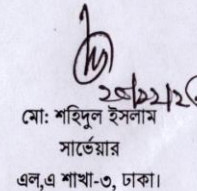 মো: শহিদুল ইসলাম
সার্ভেয়ার
এল,এ শাখা-৩, ঢাকা।